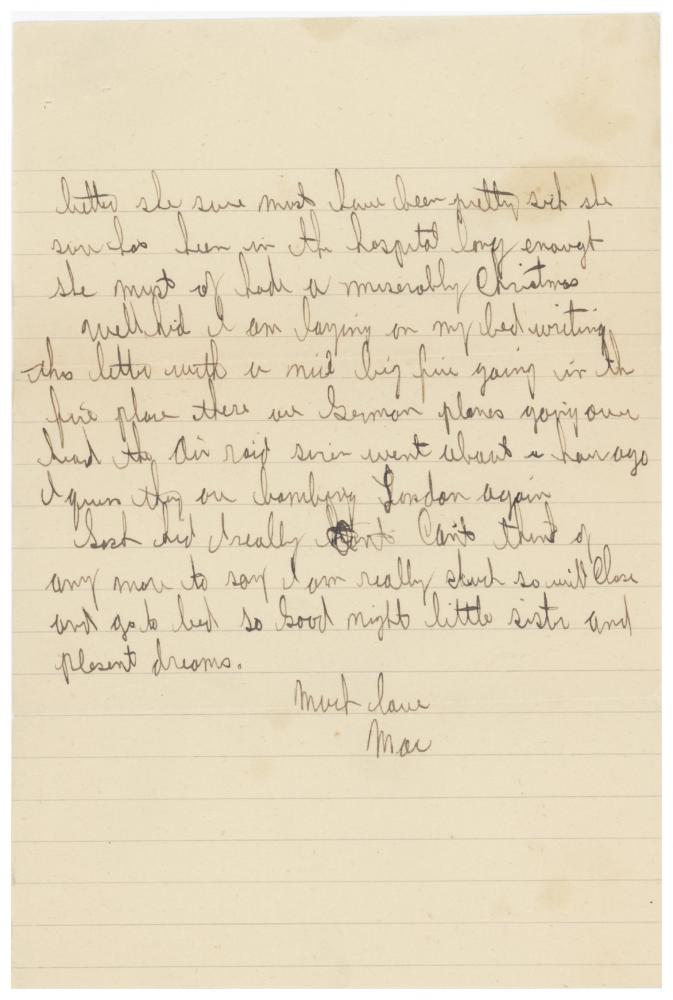 better she sure must have been pretty sick she
sure has been in the hospital long enought
she must of hade a miserably Christmas
Well kid I am laying on my bed writing
this letter with a nice big fire going in the
fire place there are German planes going over
head the Air raid siren went about a hour ago
I guess they are bombing London again
Gosh kid I really Can't think of
any more to say I am really stuck so will Close
and go to bed so Good night little sister and
plesent dreams.
Much love
Mac